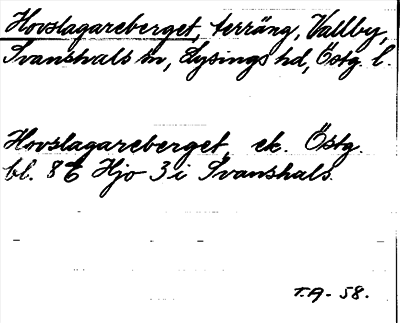 Hovslagareberget, terräng, Vallby,
Svanshals sn, Lysings hd, Östg. l.
Hovslagareberget, ek. Östg.
bl. 8E Hjo 3 i Svanshals.
T.A - 58.